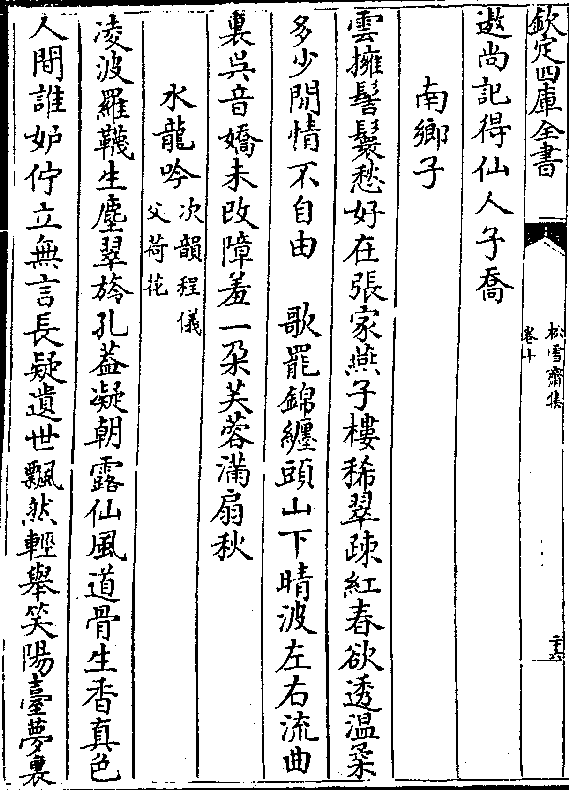 欽定四庫全書
松雪齋集
卷十
二十六
遨尚記得仙人子喬
南鄉子
雲擁髻鬟愁好在張家燕子樓稀翠疎紅春欲透温柔
多少閒情不自由　歌罷錦纏頭山下晴波左右流曲
裏吳音嬌未改障羞一朶芙蓉滿扇秋
水龍吟次韻程儀
父荷花
凌波羅韈生塵翠旍孔葢凝朝露仙風道骨生香真色
人間誰妒佇立無言長疑遺世飄然輕舉笑陽臺夢裏